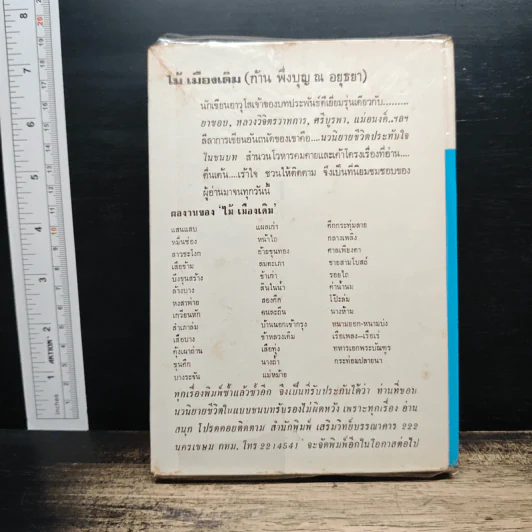 ไม้ เมืองเดิม (ก้าน พึ่งบุญ ณ อยุธยา)
นักเขียนอาวุโสเจ้าของบทประพันธ์ดีเยี่ยมรุ่นเดียวกับ.........
ยาขอบ, หลวงวิจิตรวาทการ, ศรีบูรพา, แม่อนงค์..ฯลฯ
ลีลาการเขียนอันถนัดของเขาคือ....นวนิยายชีวิตประทับใจ
ในชนบท สำนวนโวหารคมคายและเค้าโครงเรื่องที่อ่าน....
ตื่นเต้น....เร้าใจ ชวนให้ติดตาม จึงเป็นที่นิยมชมชอบของ
ผู้อ่านมาจนทุกวันนี้
ผลงานของ 'ไม้ เมืองเดิม'
แสนแสบ แผลเก่า ศึกกระทุ่มลาย
หมื่นซ่อง หน้าไถ กลางเพลิง
สาวชะโงก อ้ายขุนทอง ศาลเพียงตา
เสือข้าม ลมตะเภา ชายสามโบสถ์
บึงขุนสร้าง ข้าเก่า รอยไถ
ล้างบาง สินในน้ำ ค่าน้ำนม
หงสาพ่าย สองศึก โป๊ะล่ม
เกวียนหัก คนละถิ่น นางห้าม
สำเภาล่ม บ้านนอกเข้ากรุง หนามยอก-หนามบ่ง
เสือบาง ข้าหลวงเดิม เรือเพลง-เรือเร่
คุ้งเผาถ่าน เสือทุ่ง ทหารเอกพระบัณฑูร
ขุนศึก นางถ้ำ กระท่อมปลายนา
บางระจัน แม่หม้าย
ทุกเรื่องพิมพ์ซ้ำแล้วซ้ำอีก จึงเป็นที่รับประกันได้ว่า ท่านที่ชอบ
นวนิยายชีวิตในแบบชนบทรับรองไม่ผิดหวัง เพราะทุกเรื่อง อ่าน
สนุก โปรดคอยติดตาม สำนักพิมพ์ เสริมวิทย์บรรณาคาร 222
นครเขษม กทม. โทร 2214541 จะจัดพิมพ์อีกในโอกาสต่อไป